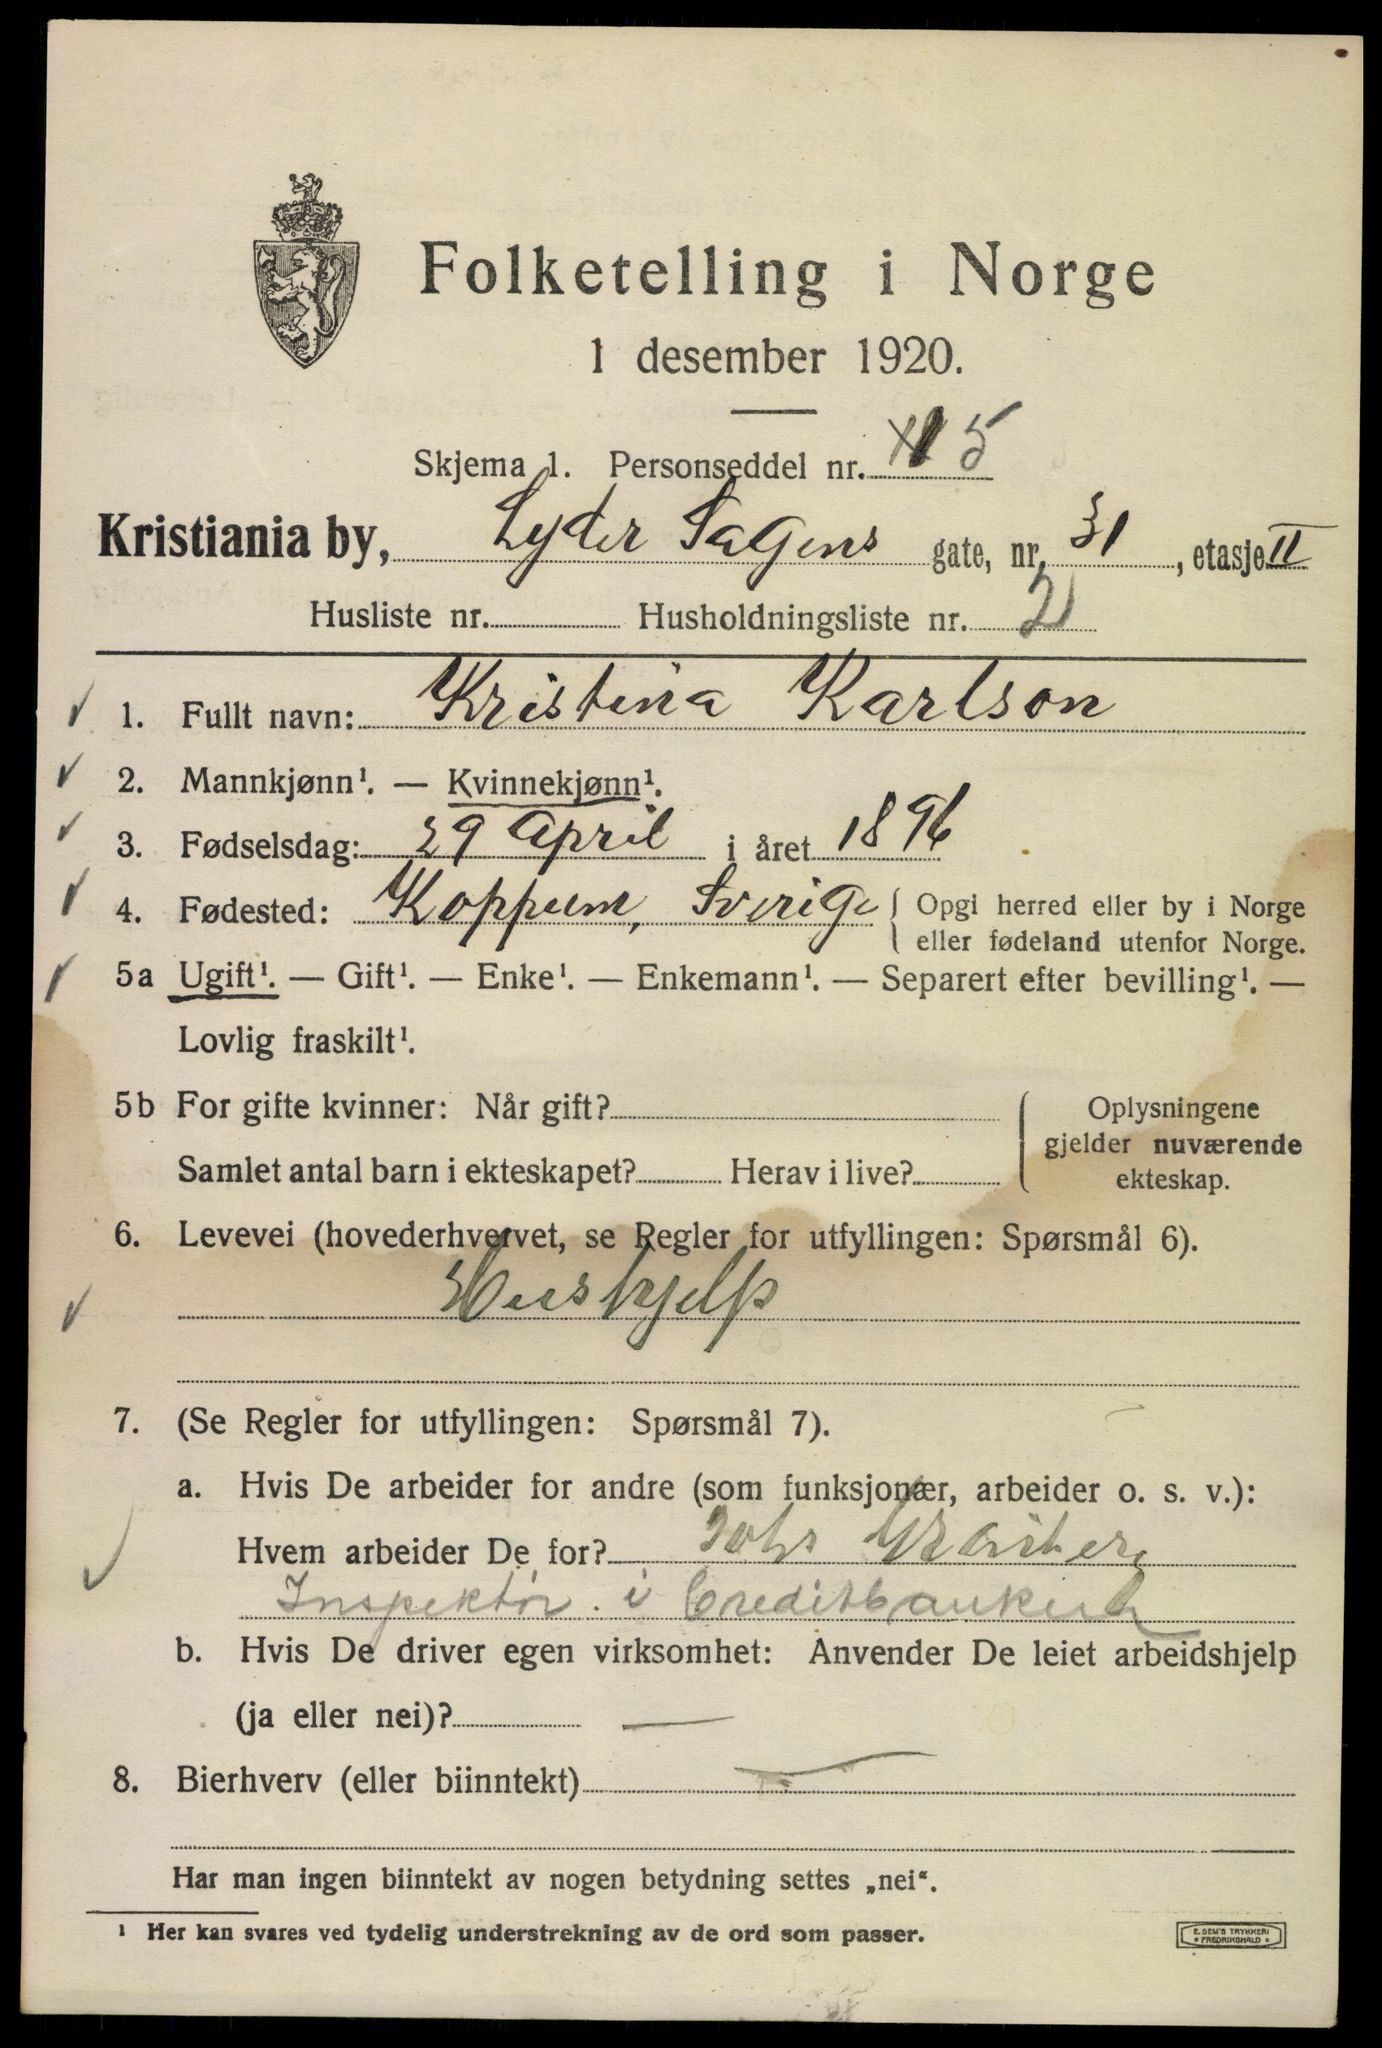 Folketelling i Norge
1 desember 1920.
Skjema 1. Personseddel nr. 5
Kristiania by, Lyder Sagens gate, nr. 31, etasje II
Husliste nr. Husholdningsliste nr. 2
1. Fullt navn: Kristina Karlson
2. Mannkjønn¹. — Kvinnekjønn¹.
3. Fødselsdag: 29 April i året 1896
4. Fødested: Koppum, Sverige { Opgi herred eller by i Norge
eller fødeland utenfor Norge.
5a Ugift¹. — Gift¹. — Enke¹. — Enkemann¹. — Separert efter bevilling¹. —
Lovlig fraskilt¹.
5b For gifte kvinner: Når gift? { Oplysningene
gjelder nuværende
Samlet antal barn i ekteskapet? Herav i live? ekteskap.
6. Levevei (hovederhvervet, se Regler for utfyllingen: Spørsmål 6).
Hushjelp
7. (Se Regler for utfyllingen: Spørsmål 7).
a. Hvis De arbeider for andre (som funksjonær, arbeider o. s. v.):
Hvem arbeider De for? Johs
Inspektør i Creditbanken
b. Hvis De driver egen virksomhet: Anvender De leiet arbeidshjelp
(ja eller nei)? —
8. Bierhverv (eller biinntekt) —
Har man ingen biinntekt av nogen betydning settes „nei“.
¹ Her kan svares ved tydelig understrekning av de ord som passer.
E. SEM'S TRYKKERI
• FREDRIKSHALD •